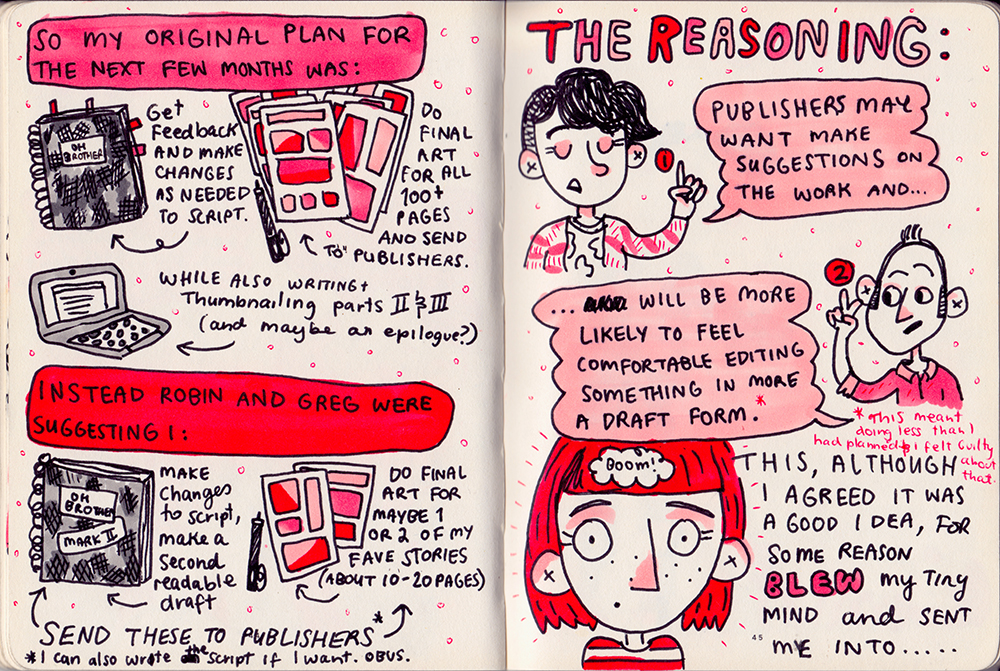 SO MY ORIGINAL PLAN FOR
THE NEXT FEW MONTHS WAS:
OH
BROTHER
Get
Feedback
AND MAKE
CHANGES
AS NEEDED
TO SCRIPT.
DO
FINAL
ART
FOR ALL
100+
PAGES
AND SEND
TO PUBLISHERS.
WHILE ALSO WRITING +
Thumbnailing parts II & III
(and maybe an epilogue?)
INSTEAD ROBIN AND GREG WERE
SUGGESTING I:
OH
BROTHER
MARK II
MAKE
Changes
to script,
make a
Second
readable
draft
DO FINAL
ART FOR
MAYBE 1
OR 2 OF MY
FAVE STORIES
(ABOUT 10-20 PAGES)
SEND THESE TO PUBLISHERS*
*I can also wrote the script if I want. OBVS.
THE REASONING:
1
PUBLISHERS MAY
WANT MAKE
SUGGESTIONS ON
THE WORK AND...
2
... WILL BE MORE
LIKELY TO FEEL
COMFORTABLE EDITING
SOMETHING IN MORE
A DRAFT FORM.*
*This meant
doing less than I
had planned & i felt Guilty
about
that.
Boom!
THIS, ALTHOUGH
I AGREED IT WAS
A GOOD IDEA, FOR
SOME REASON
BLEW my Tiny
MIND and SENT
ME INTO.....
45